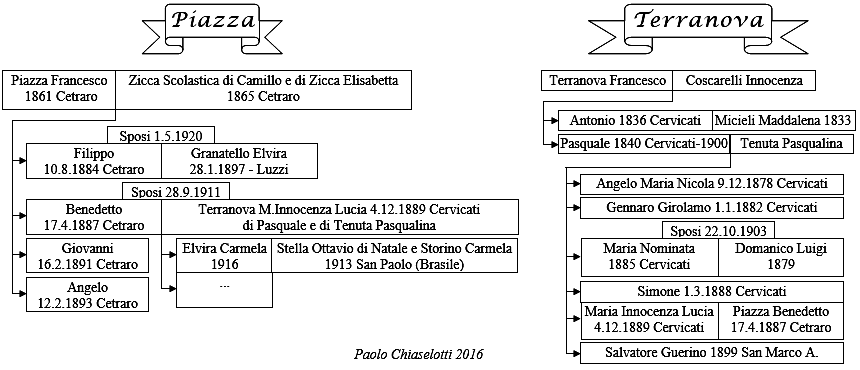 Piazza
Piazza Francesco
1861 Cetraro
Zicca Scolastica di Camillo e di Zicca Elisabetta
1865 Cetraro
Sposi 1.5.1920
Filippo
10.8.1884 Cetraro
Granatello Elvira
28.1.1897 - Luzzi
Sposi 28.9.1911
Benedetto
17.4.1887 Cetraro
Terranova M.Innocenza Lucia 4.12.1889 Cervicati
di Pasquale e di Tenuta Pasqualina
Giovanni
16.2.1891 Cetraro
Elvira Carmela
1916
Stella Ottavio di Natale e Storino Carmela
1913 San Paolo (Brasile)
Angelo
12.2.1893 Cetraro
...
Terranova
Terranova Francesco
Coscarelli Innocenza
Antonio 1836 Cervicati
Micieli Maddalena 1833
Pasquale 1840 Cervicati-1900
Tenuta Pasqualina
Angelo Maria Nicola 9.12.1878 Cervicati
Gennaro Girolamo 1.1.1882 Cervicati
Sposi 22.10.1903
Maria Nominata
1885 Cervicati
Domanico Luigi
1879
Simone 1.3.1888 Cervicati
Maria Innocenza Lucia
4.12.1889 Cervicati
Piazza Benedetto
17.4.1887 Cetraro
Salvatore Guerino 1899 San Marco A.
Paolo Chiaselotti 2016